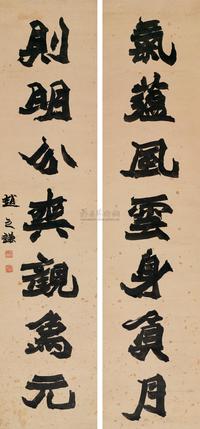 氣蘊風雲身負月
則明公奭親為元
趙之謙